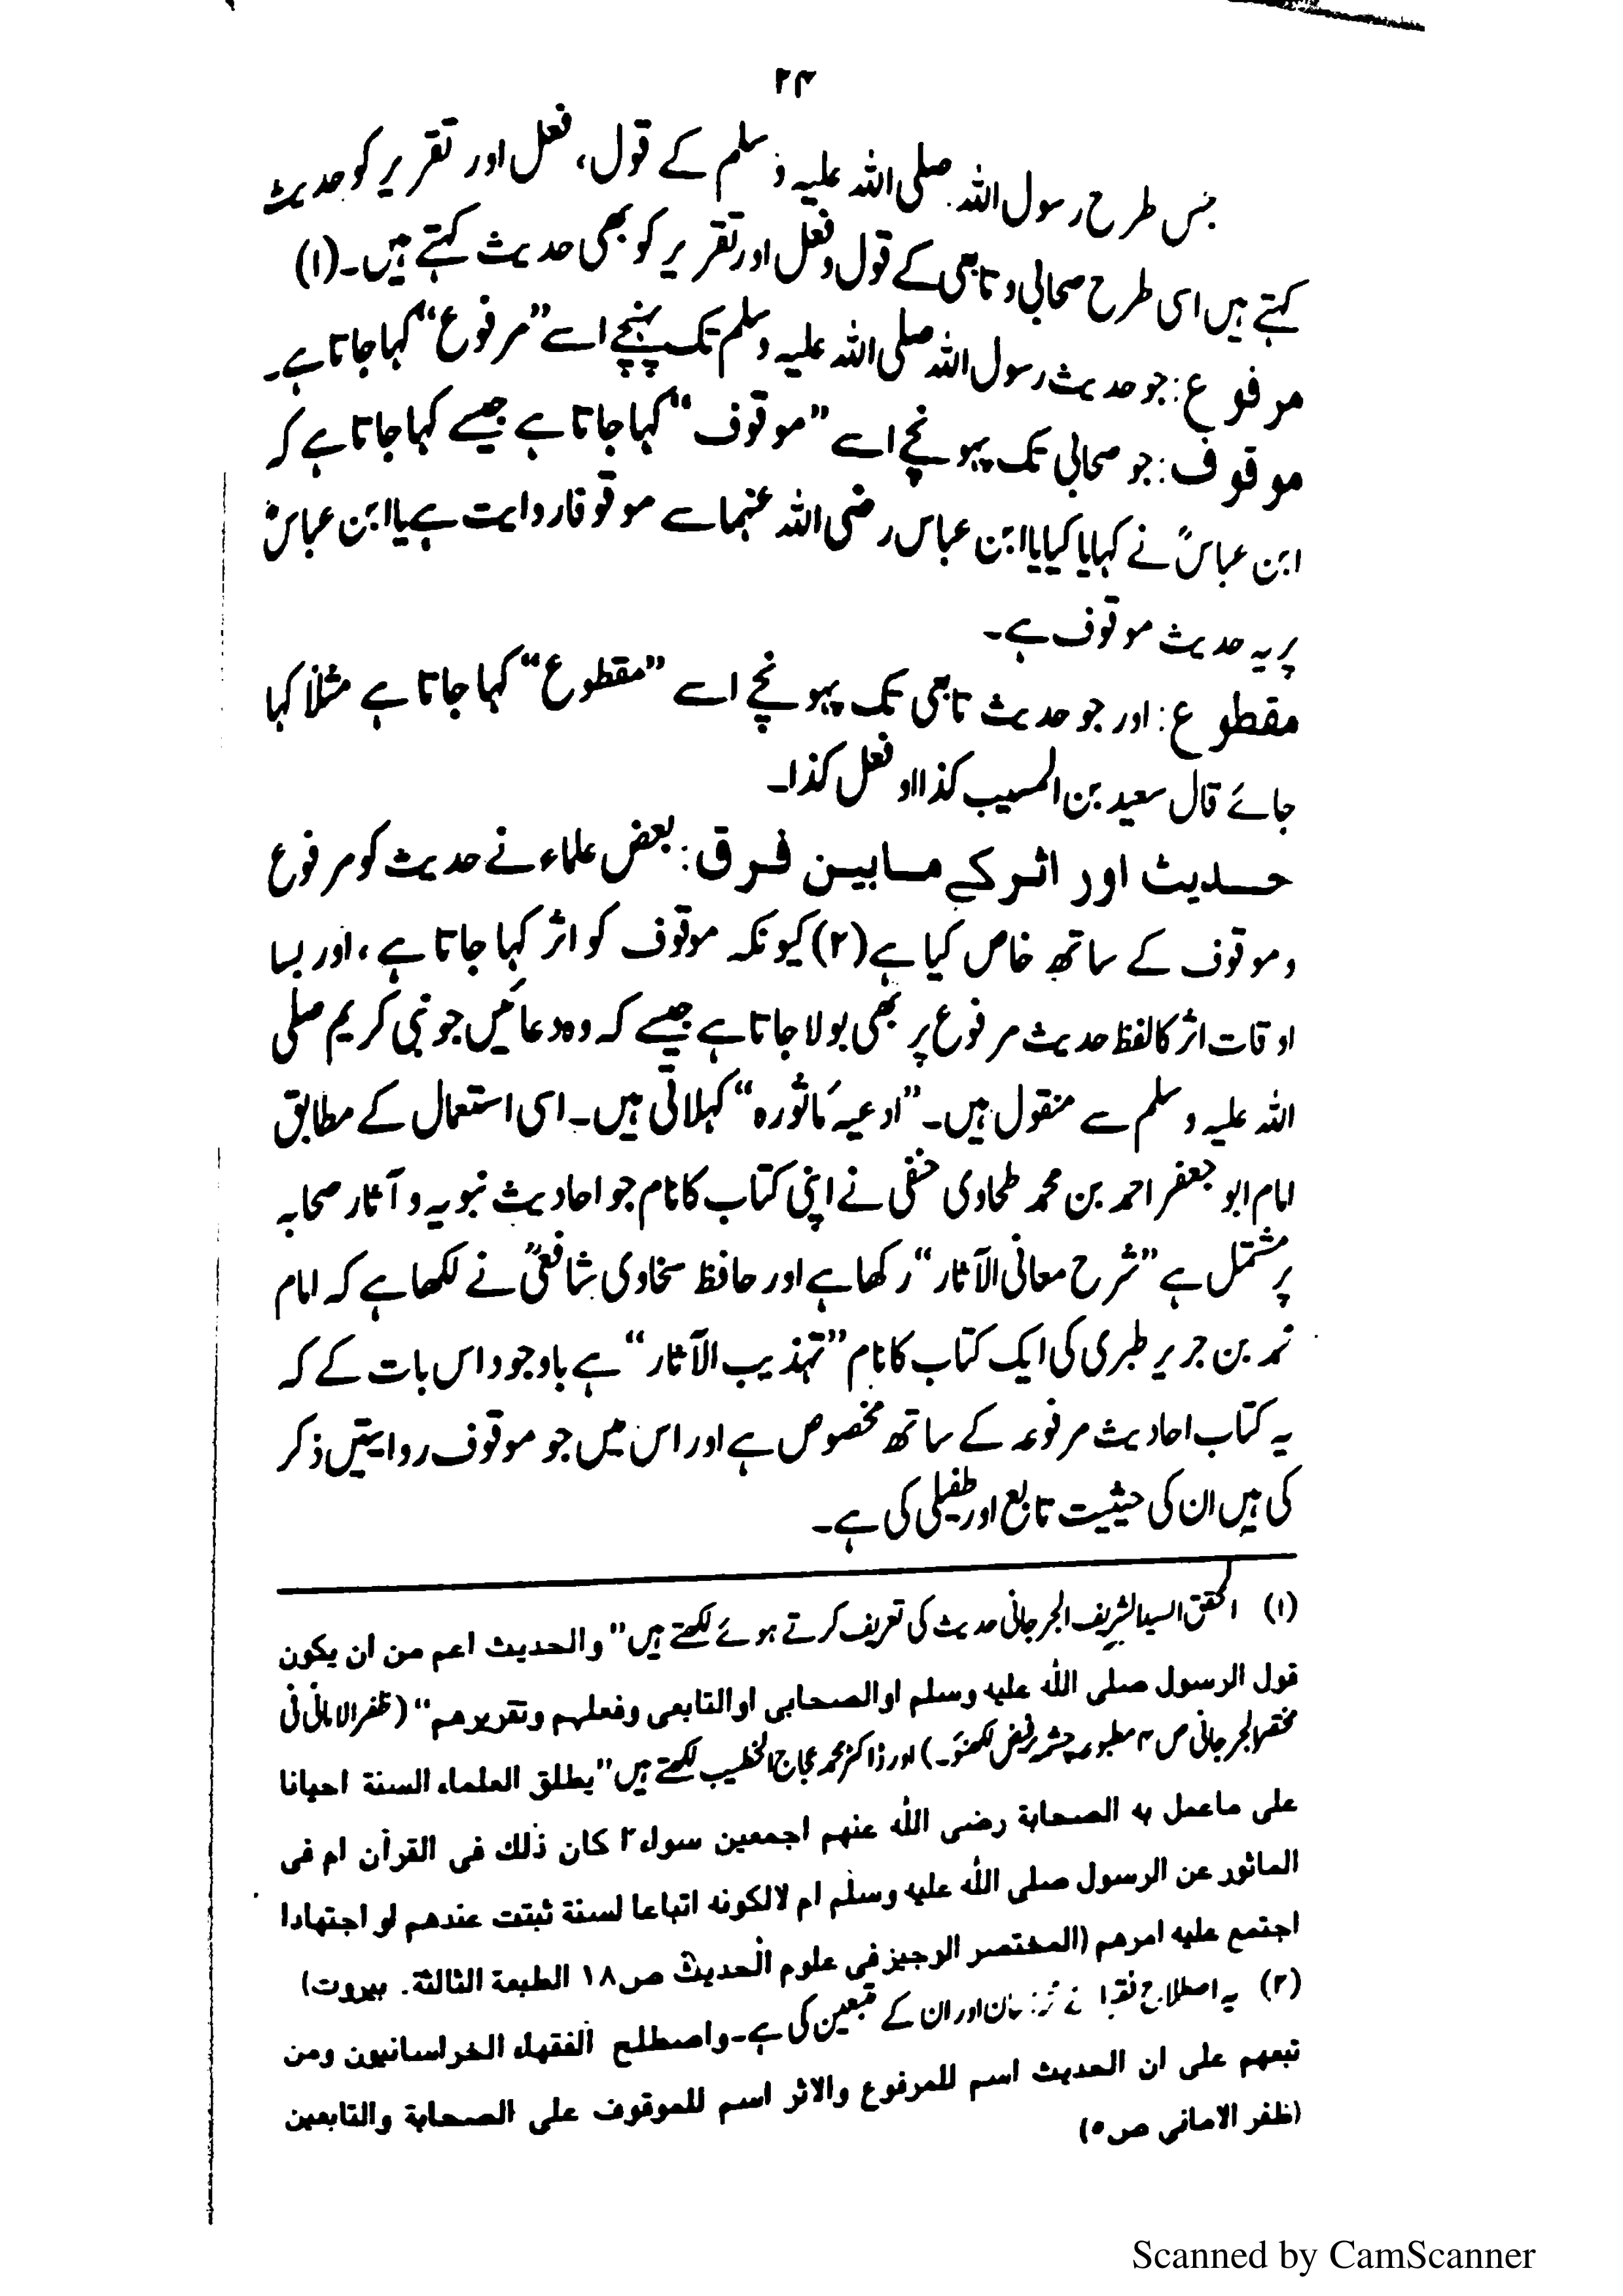 ۲۴
جس طرح رسول اللہ صلی اللہ علیہ وسلم کے قول، فعل اور تقریر کو حدیث
کہتے ہیں اسی طرح صحابی و تابعی کے قول و فعل اور تقریر کو بھی حدیث کہتے ہیں۔(۱)
مرفوع: جو حدیث رسول اللہ صلی اللہ علیہ وسلم تک پہنچے اسے ”مرفوع“ کہا جاتا ہے۔
موقوف: جو صحابی تک پہونچے اسے ”موقوف“ کہا جاتا ہے جیسے کہا جاتا ہے کہ
ابن عباسؓ نے کہا یا کیا یا ابن عباس رضی اللہ عنہما سے موقوفا روایت ہے یا ابن عباسؓ
پر یہ حدیث موقوف ہے۔
مقطوع: اور جو حدیث تابعی تک پہونچے اسے ”مقطوع“ کہا جاتا ہے مثلاً کہا
جائے قال سعید بن المسیب کذا او فعل کذا۔
حدیث اور اثر کے مابین فرق: بعض علماء نے حدیث کو مرفوع
وموقوف کے ساتھ خاص کیا ہے (۲) کیونکہ موقوف کو اثر کہا جاتا ہے، اور بسا
اوقات اثر کا لفظ حدیث مرفوع پر بھی بولا جاتا ہے جیسے کہ وہ دعائیں جو نبی کریم صلی
اللہ علیہ وسلم سے منقول ہیں۔ ”ادعیہ ماثورہ“ کہلاتی ہیں۔ اسی استعمال کے مطابق
امام ابو جعفر احمد بن محمد طحاوی حنفی نے اپنی کتاب کا نام جو احادیث نبویہ و آثار صحابہ
پر مشتمل ہے ”شرح معانی الآثار“ رکھا ہے اور حافظ سخاوی شافعیؒ نے لکھا ہے کہ امام
محمد بن جریر طبری کی ایک کتاب کا نام ”تہذیب الآثار“ ہے باوجود اس بات کے کہ
یہ کتاب احادیث مرفوعہ کے ساتھ مخصوص ہے اور اس میں جو موقوف روایتیں ذکر
کی ہیں ان کی حیثیت تابع اور طفیلی کی ہے۔
(۱) المحقق السید الشریف الجرجانی حدیث کی تعریف کرتے ہوئے لکھتے ہیں ”والحدیث اعم من ان یکون
قول الرسول صلی الله علیه وسلم او الصحابی او التابعی وفعلهم وتقریرهم“ (ظفر الامانی فی
مختصر الجرجانی ص ۴ مطبوعہ چشمہ فیض لکھنؤ۔) اور ڈاکٹر محمد عجاج الخطیب لکھتے ہیں ”یطلق العلماء السنة احیانا
علی ماعمل به الصحابة رضی الله عنهم اجمعین سواء کان ذلك فی القرآن ام فی
الماثور عن الرسول صلی الله علیه وسلم ام لا لکونه اتباعا لسنة ثبتت عندهم او اجتهادا
اجتمع علیه امرهم (المختصر الوجیز فی علوم الحدیث ص ۱۸ الطبعة الثالثة. بیروت)
(۲) یہ اصطلاح فقہا نے اور ان کے متبعین کی ہے۔ واصطلح الفقهاء الخراسانیون ومن
تبعهم علی ان الحدیث اسم للمرفوع والاثر اسم للموقوف علی الصحابة والتابعین
(ظفر الامانی ص ۵)
Scanned by CamScanner